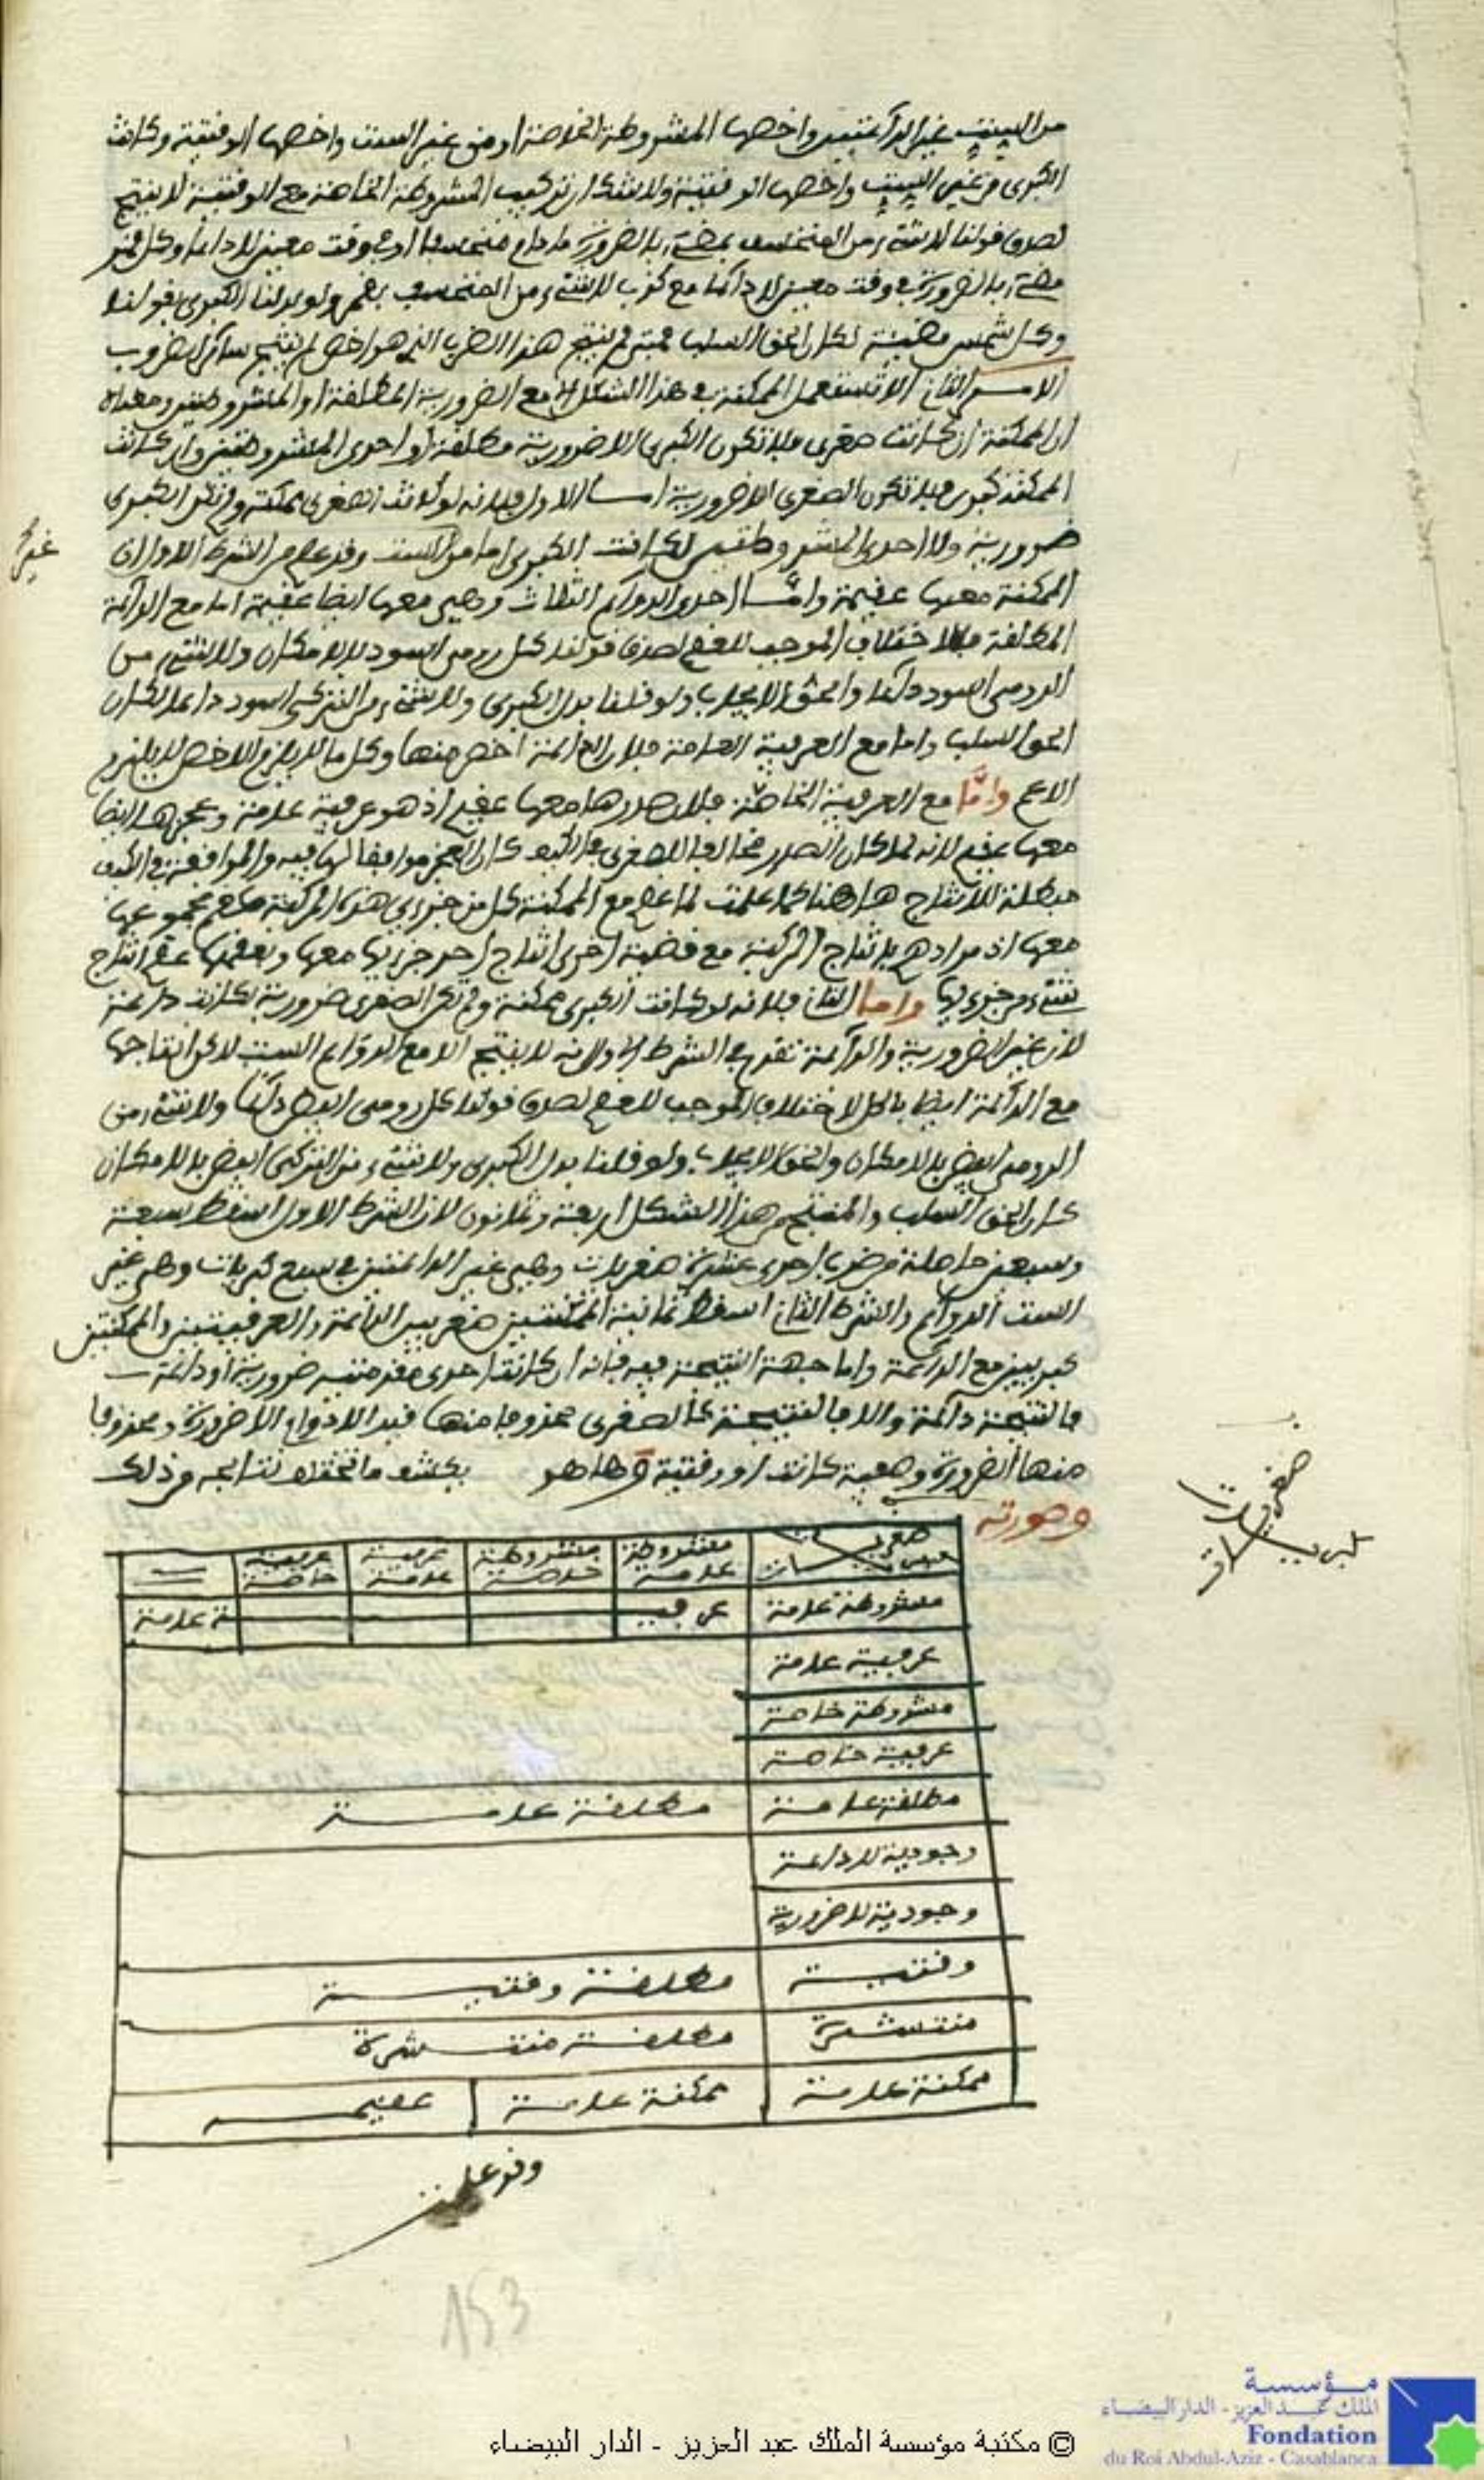 من الست غير الدائمتين واخصها المشروطة الخاصة او من غير الست واخصها الوقتية وكانت
الكبرى من غير الست واخصها الوقتية ولا شك ان تركيب المشروطة الخاصة مع الوقتية لا ينتج
لصدق قولنا لا شيء من المنخسف بمضيء بالضرورة ما دام منخسفا او في وقت معين لا دائما وكل قمر
مضيء بالضرورة في وقت معين لا دائما مع كذب لا شيء من المنخسف بقمر ولو بدلنا الكبرى بقولنا
وكل شمس مضيئة لكان الحق السلب فمتى لم ينتج هذا الضرب الذي هو اخص لم ينتج سائر الضروب
الامر الثاني الا تستعمل الممكنة في هذا الشكل الا مع الضرورية المطلقة او المشروطتين ومعناه
ان الممكنة ان كانت صغرى فلا تكون الكبرى الا ضرورية مطلقة او احدى المشروطتين وان كانت
الممكنة كبرى فلا تكون الصغرى الا ضرورية اما الاول فلانه لو كانت الصغرى ممكنة ولم تكن الكبرى
ضرورية ولا احدى المشروطتين لكانت الكبرى اما من الست وقد علم من الشرط الاول ان
غير
الممكنة معها عقيمة واما احدى الدوائم الثلاث وهي معها ايضا عقيمة اما مع الدائمة
المطلقة فللاختلاف الموجب للعقم لصدق قولنا كل رومي اسود بالامكان ولا شيء من
الرومي اسود دائما والحق الايجاب ولو قلنا بدل الكبرى ولا شيء من التركي اسود دائما لكان
الحق السلب واما مع العرفية العامة فلان الدائمة اخص منها وكل ما لا يلزم الاخص لا يلزم
الاعم واما مع العرفية الخاصة فلان صدرها معها عقيم اذ هو عرفية عامة وعجزها ايضا
معها عقيم لانه لما كان الصدر مخالفا للصغرى في الكيف كان العجز موافقا لها فيه والموافقة في الكيف
مبطلة للانتاج هاهنا كما علمت لما عقم مع الممكنة كل من جزءي هذه المركبة عقم مجموعها
معها اذ مرادهم بانتاج المركبة مع قضية اخرى انتاج احد جزءيها معها وبعقمها عقم انتاج
شيء من جزءيها واما الثاني فلانه لو كانت الكبرى ممكنة ولم تكن الصغرى ضرورية لكانت دائمة
لان غير الضرورية والدائمة تقدم في الشرط الاول انه لا ينتج الا مع الدوائم الست لكن انتاجها
مع الدائمة ايضا باطل للاختلاف الموجب للعقم لصدق قولنا كل رومي ابيض دائما ولا شيء من
الرومي ابيض بالامكان والحق الايجاب ولو قلنا بدل الكبرى ولا شيء من التركي ابيض بالامكان
كان الحق السلب والمنتج من هذا الشكل اربعة وثمانون لان الشرط الاول اسقط سبعة
وسبعين حاصلة من ضرب احدى عشرة صغريات وهي غير الدائمتين في سبع كبريات وهي غير
الست الدوائم والشرط الثاني اسقط ثمانية الممكنتين صغريين الدائمة والعرفيتين والممكنتين
كبريين مع الدائمة واما جهة النتيجة فيه فانه ان كانت احدى مقدمتيه ضرورية او دائمة
فالنتيجة دائمة والا فالنتيجة كالصغرى محذوفا منها قيد الادوام الاضرورة ومحذوفا
منها الضرورة وصفية كانت او وقتية وها هو يكشف ما تحتها لا نتائجه من ذلك
وصورته
صغريات
كبريات
صغريات كبريات | مشروطة عامة | مشروطة خاصة | عرفية عامة | عرفية خاصة
مشروطة عامة | عرفية عامة
عرفية عامة
مشروطة خاصة
عرفية خاصة
مطلقة عامة | مطلقة عامة
وجودية لا دائمة
وجودية لا ضرورية
وقتية | مطلقة وقتية
منتشرة | مطلقة منتشرة
ممكنة عامة | ممكنة عامة | عقيم
وقد علمت
153
© مكتبة مؤسسة الملك عبد العزيز - الدار البيضاء
مؤسسة
الملك عبد العزيز - الدار البيضاء
Fondation
du Roi Abdul-Aziz - Casablanca